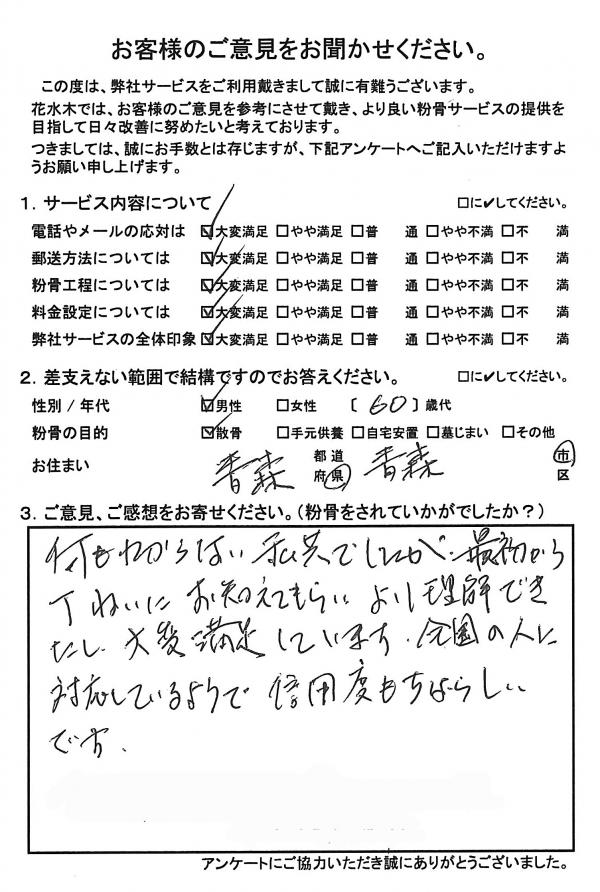 お客様のご意見をお聞かせください。
この度は、弊社サービスをご利用戴きまして誠に有難うございます。
花水木では、お客様のご意見を参考にさせて戴き、より良い粉骨サービスの提供を
目指して日々改善に努めたいと考えております。
つきましては、誠にお手数とは存じますが、下記アンケートへご記入いただけますよ
うお願い申し上げます。
1. サービス内容について □に✔してください。
電話やメールの応対は ☑大変満足 □やや満足 □普 通 □やや不満 □不 満
郵送方法については ☑大変満足 □やや満足 □普 通 □やや不満 □不 満
粉骨工程については ☑大変満足 □やや満足 □普 通 □やや不満 □不 満
料金設定については ☑大変満足 □やや満足 □普 通 □やや不満 □不 満
弊社サービスの全体印象 ☑大変満足 □やや満足 □普 通 □やや不満 □不 満
2. 差支えない範囲で結構ですのでお答えください。 □に✔してください。
性別 / 年代 ☑男性 □女性 〔 60 〕歳代
粉骨の目的 ☑散骨 □手元供養 □自宅安置 □墓じまい □その他
お住まい 青森 都道府県 青森 市区
3. ご意見、ご感想をお寄せください。(粉骨をされていかがでしたか?)
何もわからない私共でしたが、最初から
丁ねいにお知えてもらい より理解でき
たし、大変満足しています。全国の人に
対応しているようで 信用度もすばらしい
です。
アンケートにご協力いただき誠にありがとうございました。